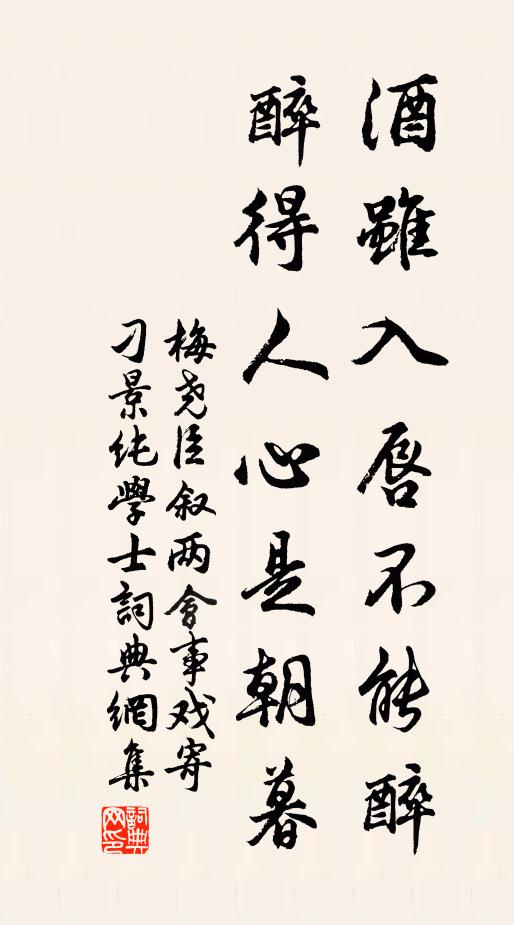 酒雖入唇不能醉
醉得人心是朝暮
梅尧臣叙两會事戏寄
刁景纯學士詞典網集
詞典
网印